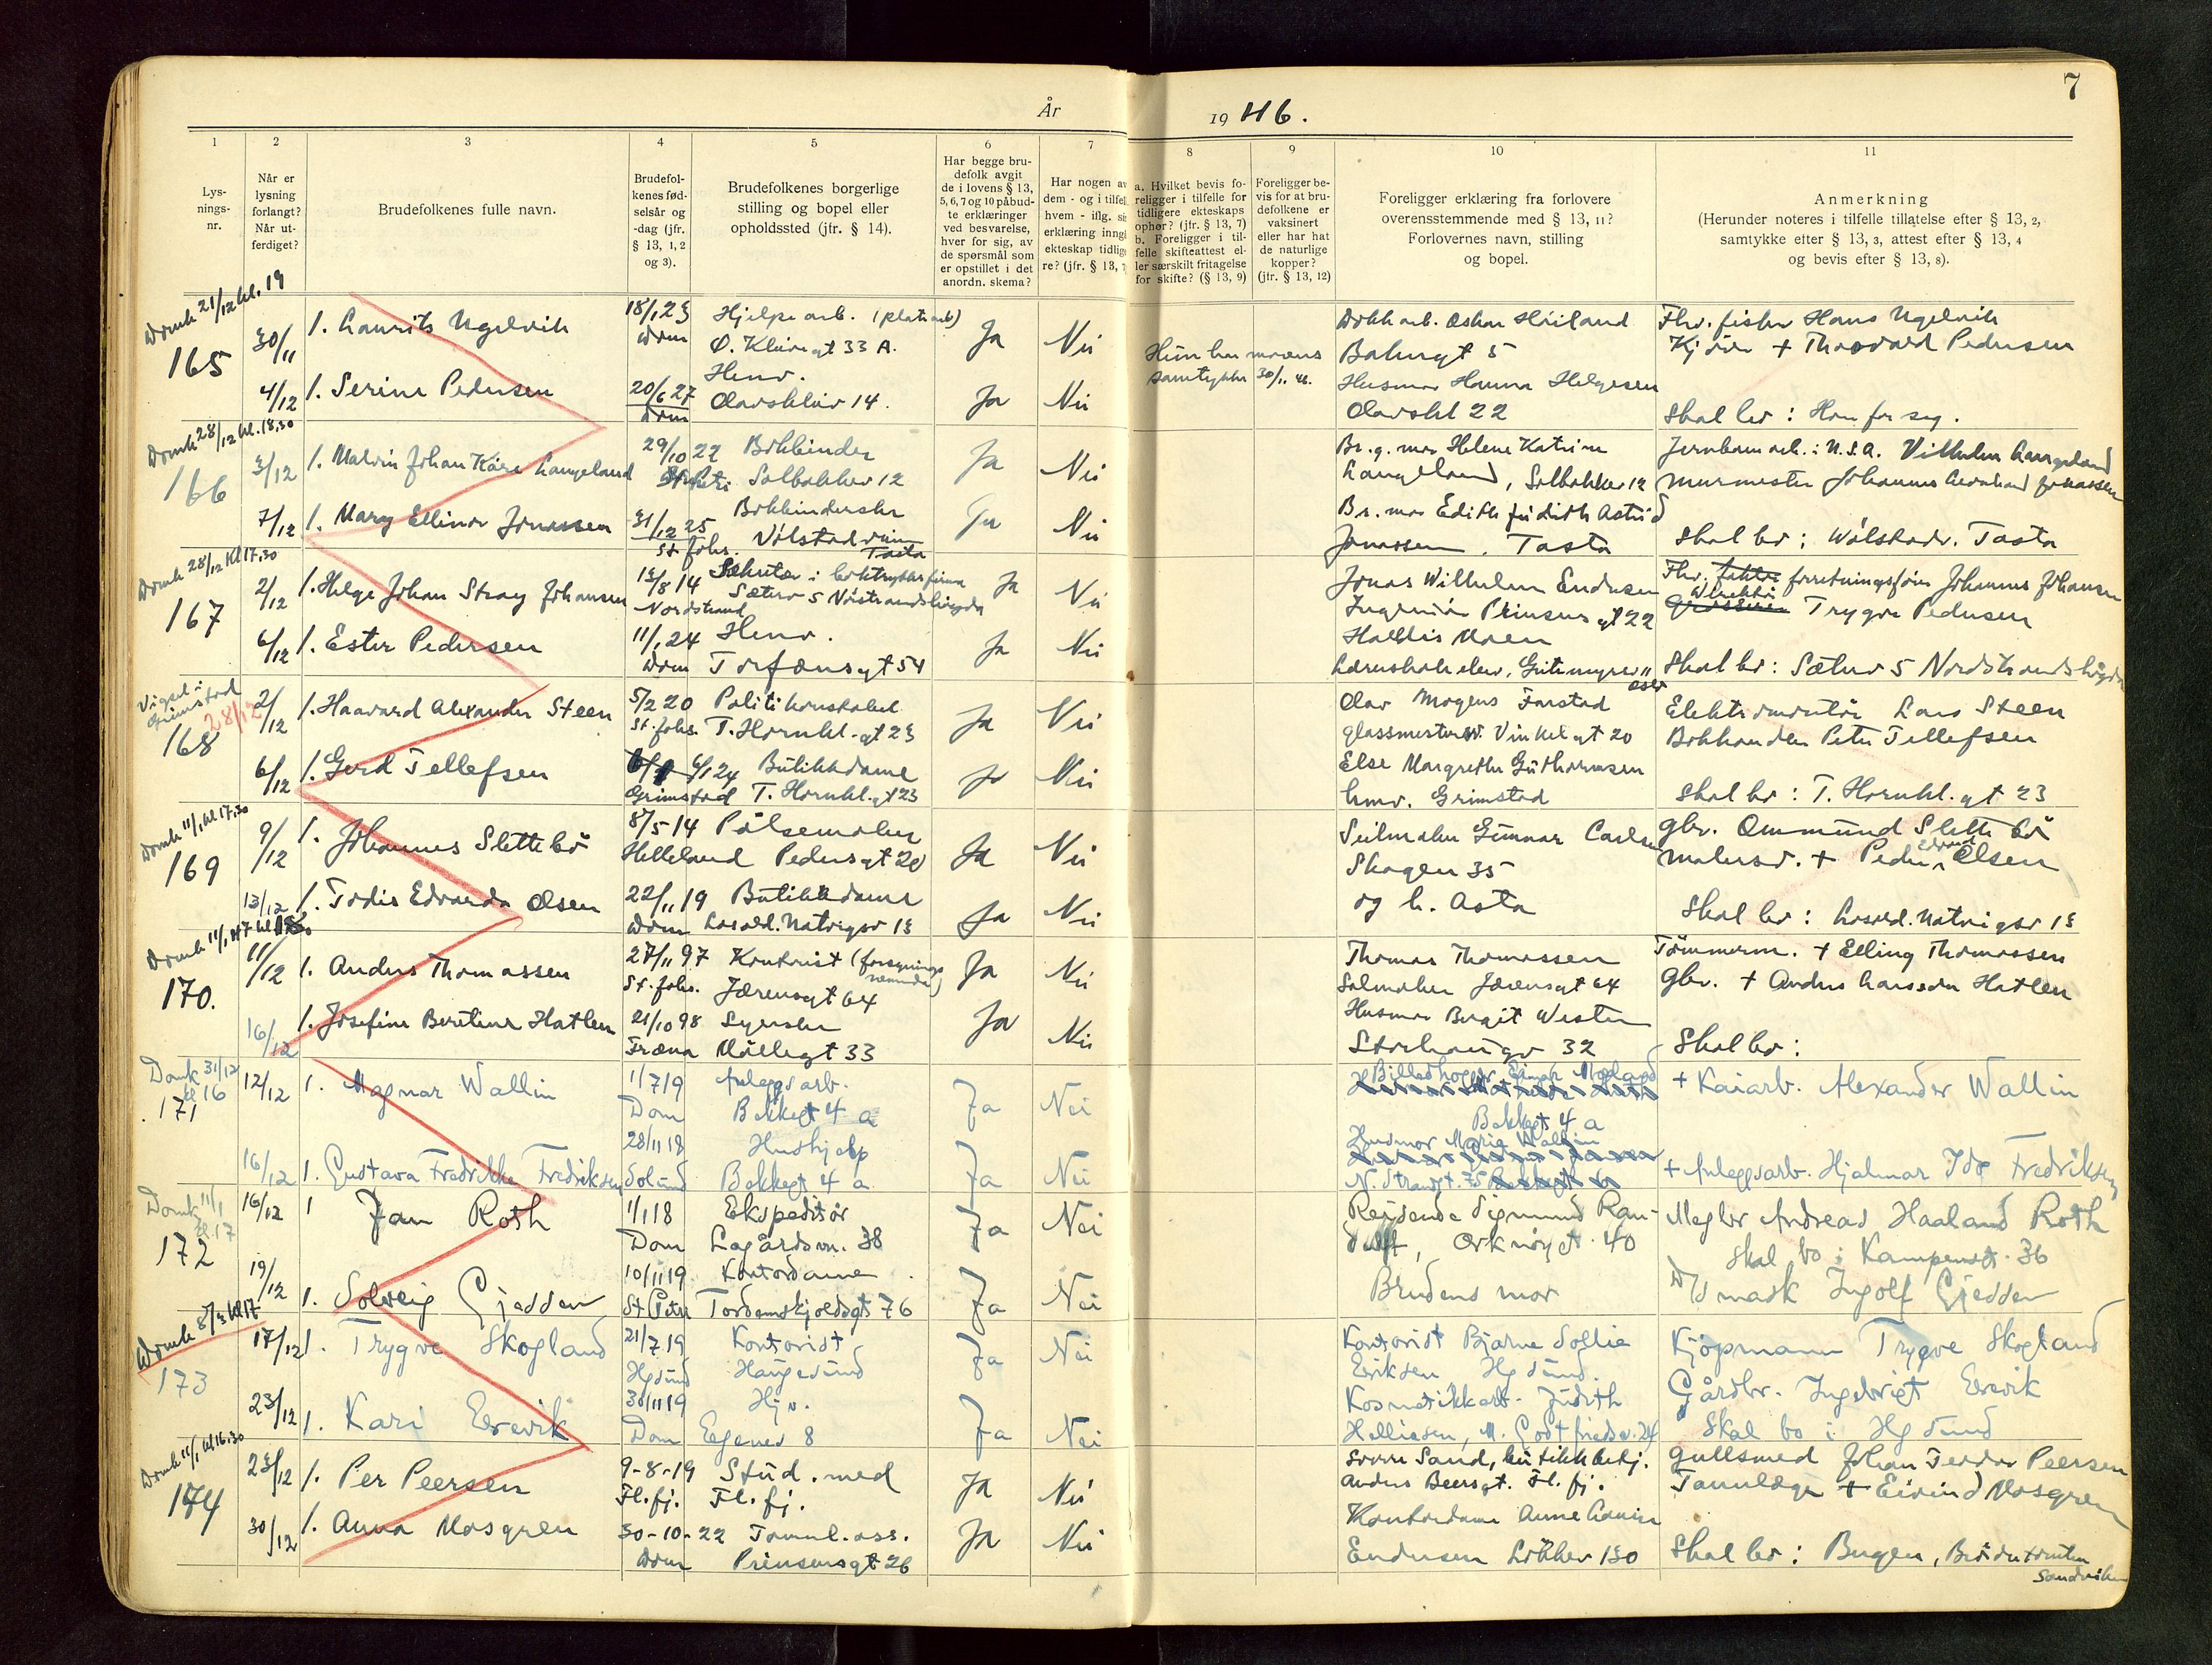 År
1946.
7
1
2
3
4
5
6
7
8
9
10
11
Lys-
nings-
nr.
Når er
lysning
forlangt?
Når ut-
ferdiget?
Brudefolkenes fulle navn.
Brudefol-
kenes fød-
selsår og
-dag (jfr.
§ 13, 1, 2
og 3).
Brudefolkenes borgerlige
stilling og bopel eller
opholdssted (jfr. § 14).
Har begge bru-
defolk avgit
de i lovens § 13,
5, 6, 7 og 10 påbud-
te erklæringer
ved besvarelse,
hver for sig, av
de spørsmål som
er opstillet i det
anordn. skema?
Har nogen av
dem - og i tilfelle
hvem - iflg. sin
erklæring inngå
ekteskap tidlige-
re? (jfr. § 13, 7
a. Hvilket bevis fo-
religger i tilfelle for
tidligere ekteskaps
ophør? (jfr. § 13, 7)
b. Foreligger i til-
felle skifteattest el-
ler særskilt fritagelse
for skifte? (§ 13, 9)
Foreligger be-
vis for at bru-
defolkene er
vaksinert
eller har hat
de naturlige
kopper?
(jfr. § 13, 12)
Foreligger erklæring fra forlovere
overensstemmende med § 13, 11?
Forlovernes navn, stilling
og bopel.
Anmerkning
(Herunder noteres i tilfelle tillatelse efter § 13, 2,
samtykke efter § 13, 3, attest efter § 13, 4
og bevis efter § 13, 8).
Domk 21/12 kl. 19
165
30/11
1. Laurits Ugelvik
18/1 23
Dom
Hjelpearb. (platearb)
Ø. Kleivegt 33 A.
Ja
Nei
Hun har morens
samtykke 30/11 46.
Dokkarb. Oskar Høiland
Bakergt 5
Fhv. fisker Hans Ugelvik
Kjører + Thorvard Pedersen
4/12
1. Serine Pedersen
20/6 27
Dom
Hmv.
Olavskleiv 14.
Ja
Nei
Husmor Hanna Helgesen
Olavskl 22
Skal bo: Hver for seg.
Domk 28/12 kl. 18.30
166
3/12
1. Malvin Johan Kåre Langeland
29/10 22
St. Petri
Bokbinder
Solbakkev 12
Ja
Nei
Br.g. mor Helene Katrine
Langeland, Solbakkev 12
Jernbanearb. i U.S.A. Vilhelm Langeland
Murmester Johannes Jonassen
7/12
1. Mary Ellinor Jonassen
31/12 25
St. Johs.
Bokbinderske
Tasta
Ja
Nei
Br. mor Edith Judith Astrid
Jonassen. Tasta
Skal bo: Vålstadv. Tasta
Domk 28/12 Kl 17.30
167
2/12
1. Helge Johan Stray Johansen
13/8 14
Nordstrand
Sekretær i boktrykkerfirma
Sæterv 5 Nordstrandshøgda
Ja
Nei
Jonas Wilhelm Endresen
Ingeniør Prinsensgt 22
Fhv. forretningsfører Johannes Johansen
Direktør Trygve Pedersen
6/12
1. Ester Pedersen
11/1 24
Dom
Hmv.
Torfæusgt 54
Ja
Nei
Hallis Moen
Lærerskoleelev, Geitmyrsv 11
Oslo
Skal bo: Sæterv 5 Nordstrandshøgda
Vigsel i
Grimstad
28/12
168
2/12
1. Haavard Alexander Steen
5/2 20
St. Johs.
Politikonstabel
T. Hornkl.gt 23
Ja
Nei
Olav Mogens Farstad
glassmestersv. Vinkelgt 20
Elektromontør Lars Steen
Bokhandler Peter Tellefsen
6/12
1. Gerd Tellefsen
6/1 24
Grimstad
Butikkdame
T. Hornkl.gt 23
Ja
Nei
Else Margrethe Guthormsen
hmv. Grimstad
Skal bo: T. Hornkl.gt 23
Domk 11/1 kl 17.30
169
9/12
1. Johannes Slettebø
8/5 14
Helleland
Pølsemaker
Pedersgt 20
Ja
Nei
Seilmaker Gunnar Carlsen
Skagen 35
gbr. Ommund Slettebø
Malersv. + Peder Edvard Olsen
13/12
1. Todis Edvarda Olsen
22/11 19
Dom
Butikkdame
Ja
Nei
og h. Asta
Domk 11/1 47
170.
11/12
1. Anders Thomassen
27/11 97
St. Johs.
Kontorist (forsynings
nemnda)
Jærensgt 64
Ja
Nei
Thomas Thomassen
Salmaker Jærensgt 64
Tømmerm. + Elling Thomassen
Gbr. + Anders Larssen Hatlen
16/12
1. Josefine Beretine Hatlen
21/10 98
Fræna
Syerske
Møllegt 33
Ja
Nei
Husmor Bergit Westen
Storhaugv 32
Skal bo:
Domk 31/12
kl 16
171
12/12
1. Magnar Wallin
1/7 19
Dom
Anleggsarb.
Bakkegt 4 a
Ja
Nei
Billedhogger Einar Mæland
Bakkegt 4 a
+ Kaiarb. Alexander Wallin
16/12
1. Gustava Fredrikke Fredriksen
28/11 18
Solund
Hushjelp
Bakkegt 4 a
Ja
Nei
Husmor Marie Wallin
N. Strandgt. 75
+ Anleggsarb. Hjalmar Ide Fredriksen
Domk 11/1
kl. 17
172
16/12
1 Jan Roth
1/1 18
Dom
Ekspeditør
Lagårdsvn. 38
Ja
Nei
Reisende Sigmund Ran-
dulff, Orknøygt. 40
Megler Andreas Haaland Roth
Skal bo i Kampensgt. 36
19/12
1. Solveig Gjedden
10/11 19
St Petri
Kontordame
Tordenskjoldsgt 76
Ja
Nei
Brudens mor
D/S mask Ingolf Gjedden
Domk 8/3 kl 17
173
17/12
1. Trygve Skogland
21/7 19
Hgsund
Kontorist
Haugesund
Ja
Nei
Kontorist Bjarne Sollie
Eriksen Hgsund.
Kjøpmann Trygve Skogland
Gårdbr. Ingebrigt Erevik
23/12
1. Kari Erevik
30/11 19
Dom
Hjv.
Egenes 8
Ja
Nei
Kosmetikkarb. Judith
Helliesen, M. Godtfriedsv. 24
Skal bo i Hgsund
Domk 11/1 kl 16.30
174
23/12
1. Per Peersen
9-8-19
Fl. fj.
Stud. med
Fl. fj.
Ja
Nei
Sverre Sand, butikkbetj.
Anders Beersgt. Fl. fj.
Gullsmed Johan Feodor Peersen
Tannlege + Eivind Mosgren
30/12
1. Anna Mosgren
30-10-22
Dom
Tannl.ass.
Prinsensgt 26
Ja
Nei
Kontordame Anne Louise
Endresen Løkkev 130
Skal bo:
Sandviken